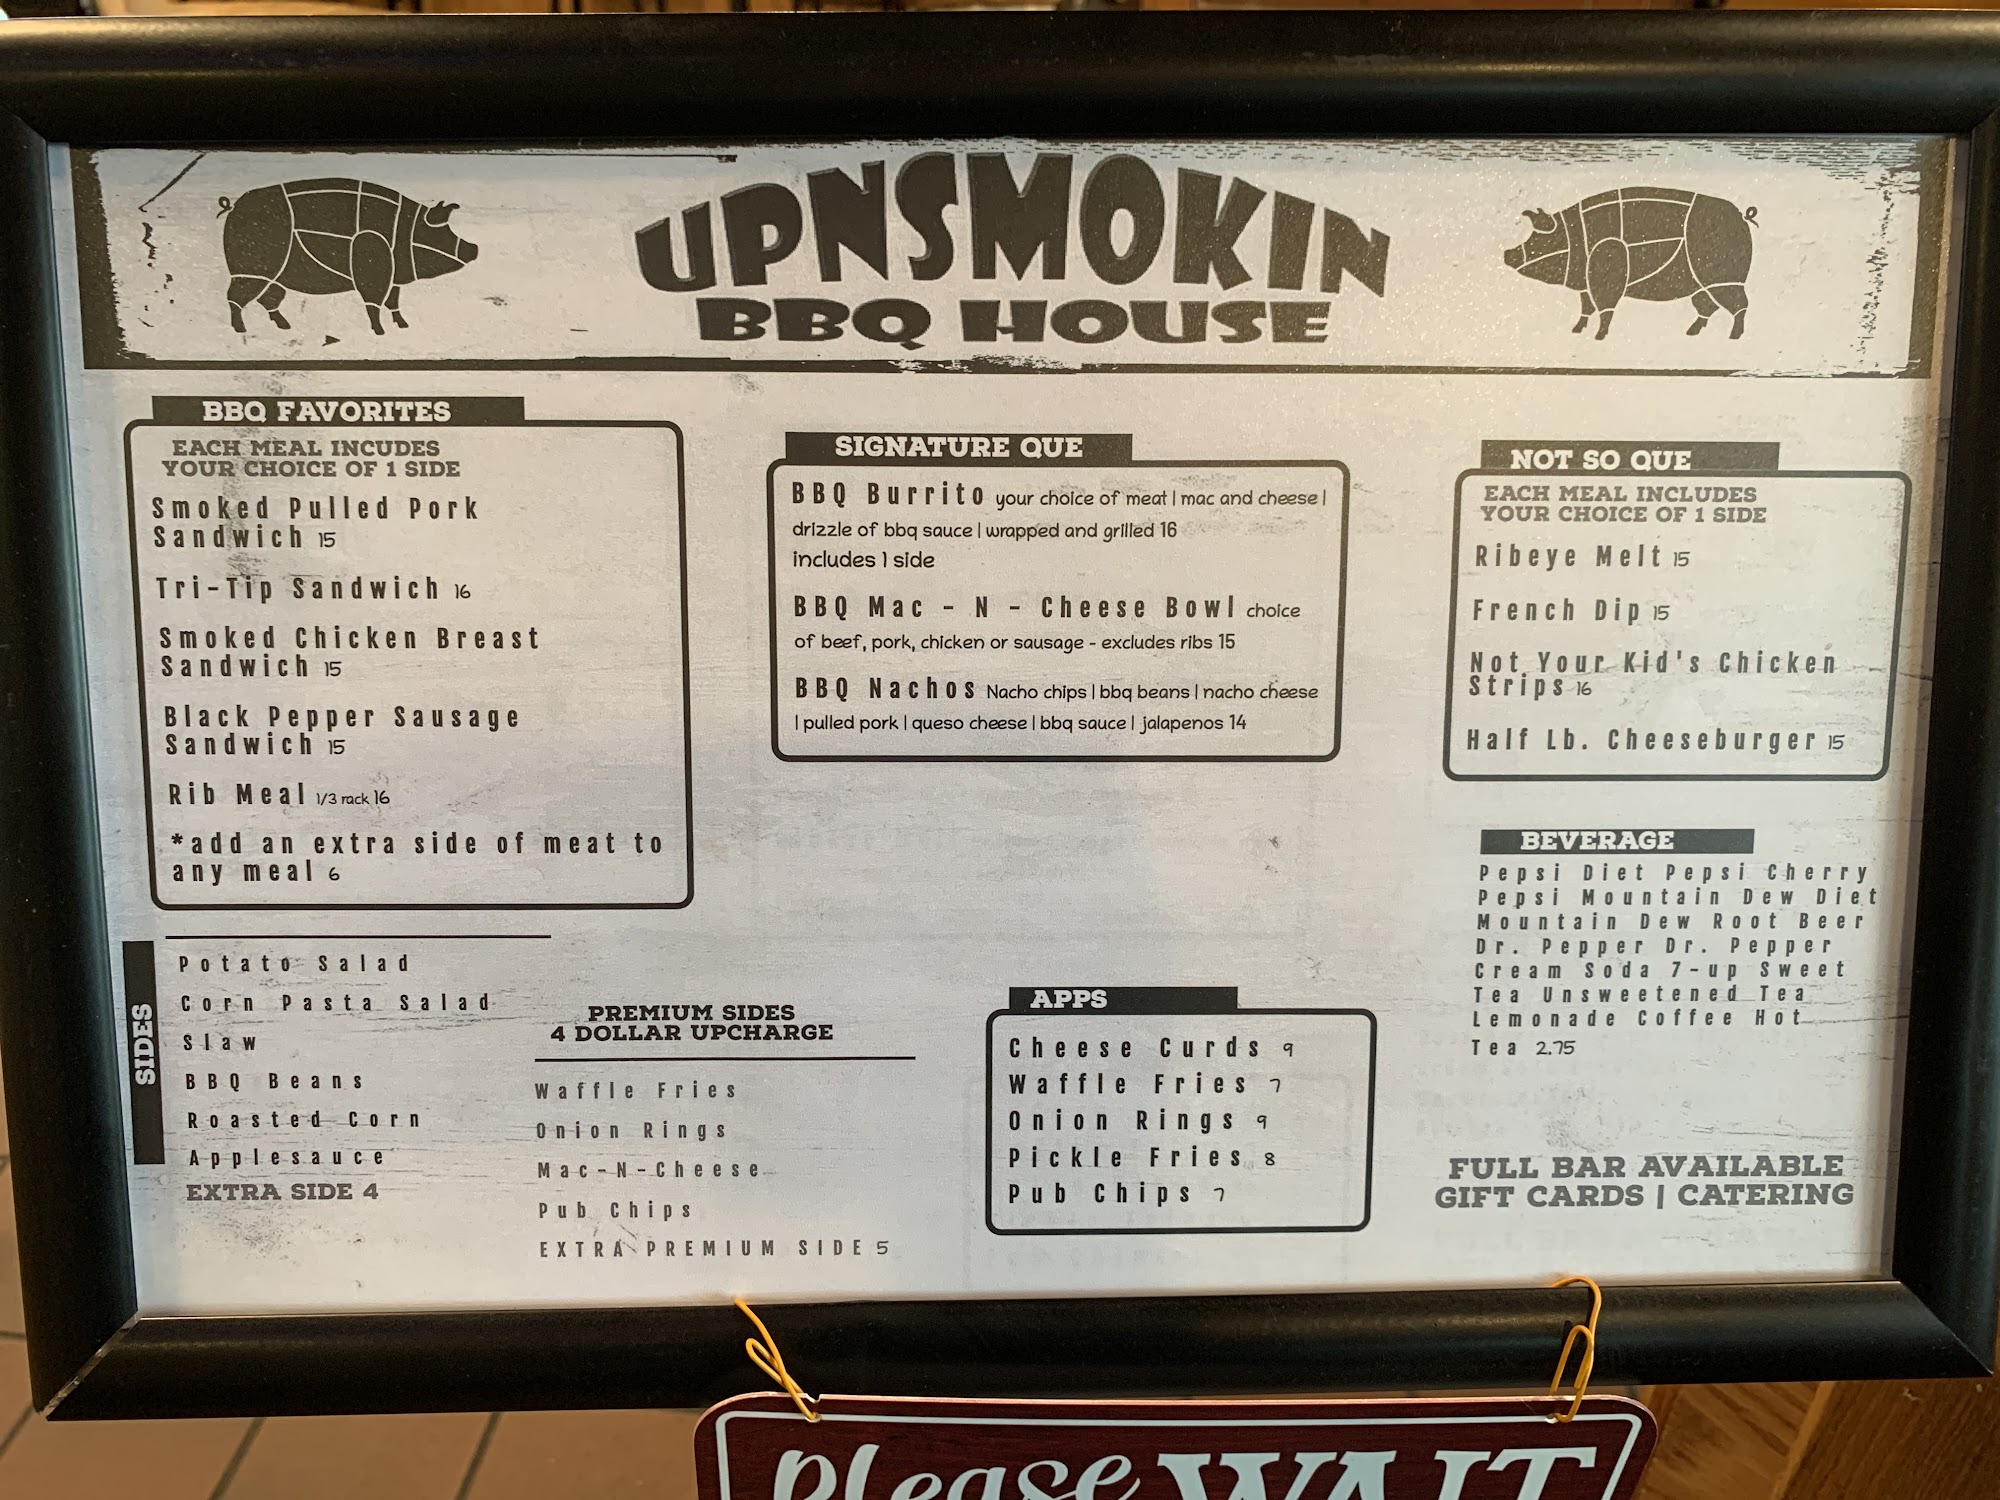 UPNSMOKIN
BBQ HOUSE
BBQ FAVORITES
EACH MEAL INCUDES
YOUR CHOICE OF 1 SIDE
Smoked Pulled Pork
Sandwich 15
Tri-Tip Sandwich 16
Smoked Chicken Breast
Sandwich 15
Black Pepper Sausage
Sandwich 15
Rib Meal 1/3 rack 16
*add an extra side of meat to
any meal 6
SIGNATURE QUE
BBQ Burrito your choice of meat | mac and cheese |
drizzle of bbq sauce | wrapped and grilled 16
includes 1 side
BBQ Mac - N - Cheese Bowl choice
of beef, pork, chicken or sausage - excludes ribs 15
BBQ Nachos Nacho chips | bbq beans | nacho cheese
| pulled pork | queso cheese | bbq sauce | jalapenos 14
NOT SO QUE
EACH MEAL INCLUDES
YOUR CHOICE OF 1 SIDE
Ribeye Melt 15
French Dip 15
Not Your Kid's Chicken
Strips 16
Half Lb. Cheeseburger 15
BEVERAGE
Pepsi Diet Pepsi Cherry
Pepsi Mountain Dew Diet
Mountain Dew Root Beer
Dr. Pepper Dr. Pepper
Cream Soda 7-up Sweet
Tea Unsweetened Tea
Lemonade Coffee Hot
Tea 2.75
SIDES
Potato Salad
Corn Pasta Salad
Slaw
BBQ Beans
Roasted Corn
Applesauce
EXTRA SIDE 4
PREMIUM SIDES
4 DOLLAR UPCHARGE
Waffle Fries
Onion Rings
Mac-N-Cheese
Pub Chips
EXTRA PREMIUM SIDE 5
APPS
Cheese Curds 9
Waffle Fries 7
Onion Rings 9
Pickle Fries 8
Pub Chips 7
FULL BAR AVAILABLE
GIFT CARDS | CATERING
Please WAIT